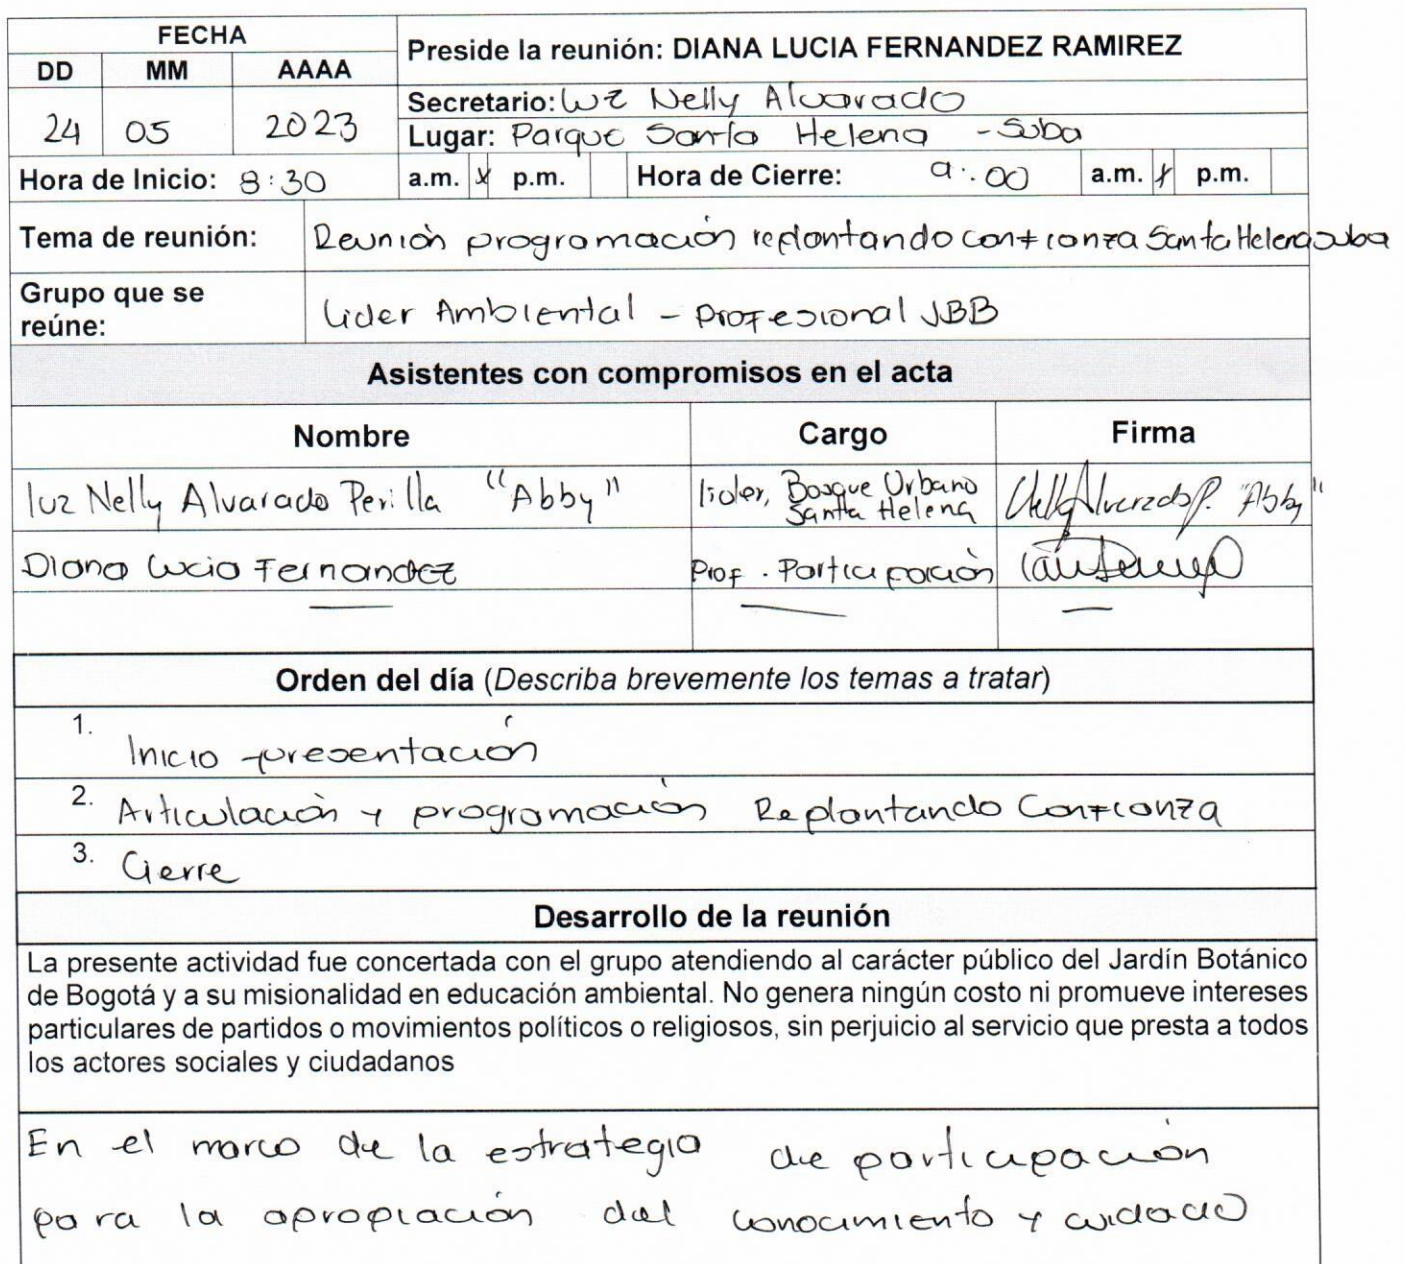 FECHA
Preside la reunión: DIANA LUCIA FERNANDEZ RAMIREZ
DD MM AAAA
24 05 2023
Secretario: Luz Nelly Alvarado
Lugar: Parque Santa Helena - Suba
Hora de Inicio: 8:30 a.m. x p.m. Hora de Cierre: 9:00 a.m. x p.m.
Tema de reunión: Reunión programación replantando confianza Santa Helena Suba
Grupo que se
reúne: Lider Ambiental - Profesional JBB
Asistentes con compromisos en el acta
Nombre Cargo Firma
luz Nelly Alvarado Perilla "Abby" lider, Bosque Urbano
Santa Helena NellyAlvaradoP. "Abby"
Diana Lucia Fernandez Prof. Participación
Orden del día (Describa brevemente los temas a tratar)
1. Inicio - presentación
2. Articulación y programación Replantando Confianza
3. Cierre
Desarrollo de la reunión
La presente actividad fue concertada con el grupo atendiendo al carácter público del Jardín Botánico
de Bogotá y a su misionalidad en educación ambiental. No genera ningún costo ni promueve intereses
particulares de partidos o movimientos políticos o religiosos, sin perjuicio al servicio que presta a todos
los actores sociales y ciudadanos
En el marco de la estrategia de participación
para la apropiación del conocimiento y cuidado